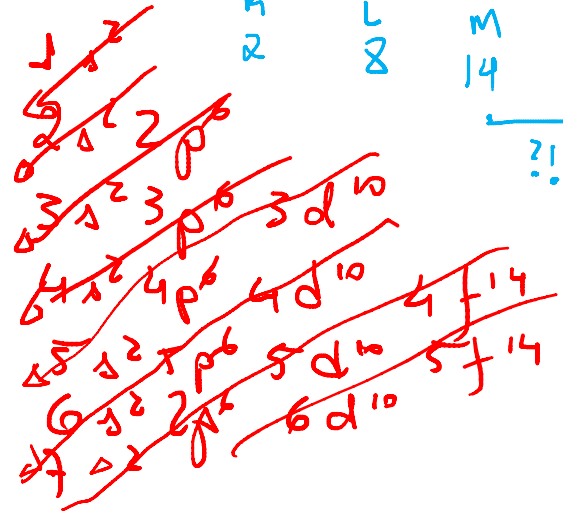 L M
2 8 14
?!
1s²
2s² 2p⁶
3s² 3p⁶ 3d¹⁰
4s² 4p⁶ 4d¹⁰ 4f¹⁴
5s² 5p⁶ 5d¹⁰ 5f¹⁴
6s² 2p⁶ 6d¹⁰
7s²